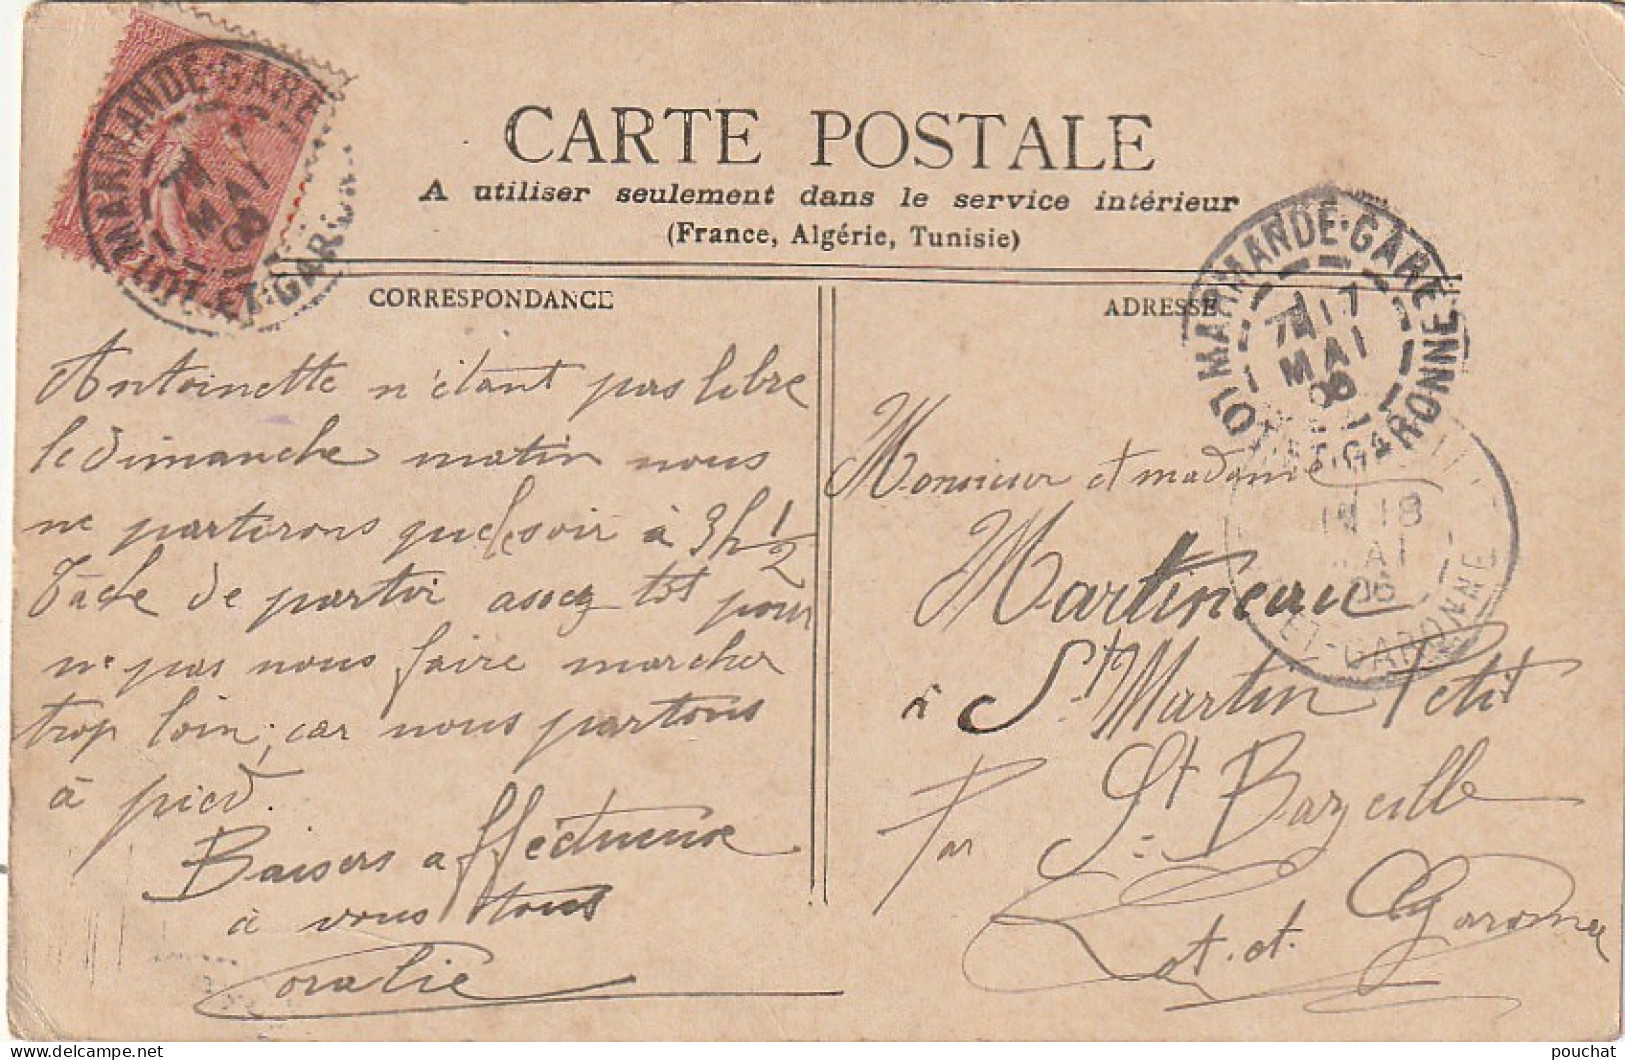 CARTE POSTALE
A utiliser seulement dans le service intérieur
(France, Algérie, Tunisie)
MARMANDE-GARE
MAI
06
LOT-ET-GAR
CORRESPONDANCE
Antoinette n'étant pas libre
le dimanche matin nous
ne partirons que le soir à 3h 1/2
Tâche de partir assez tôt pour
ne pas nous faire marcher
trop loin; car nous partons
à pied.
Baisers affectueux
à vous tous
Coralie
ADRESSE
MARMANDE-GARE
17
MAI
06
LOT-ET-GARONNE
18
MAI
06
ET-GARONNE
Monsieur et madame
Martineau
à St Martin Petit
Par St Bazeille
Lot.et.Garonne
pouchat